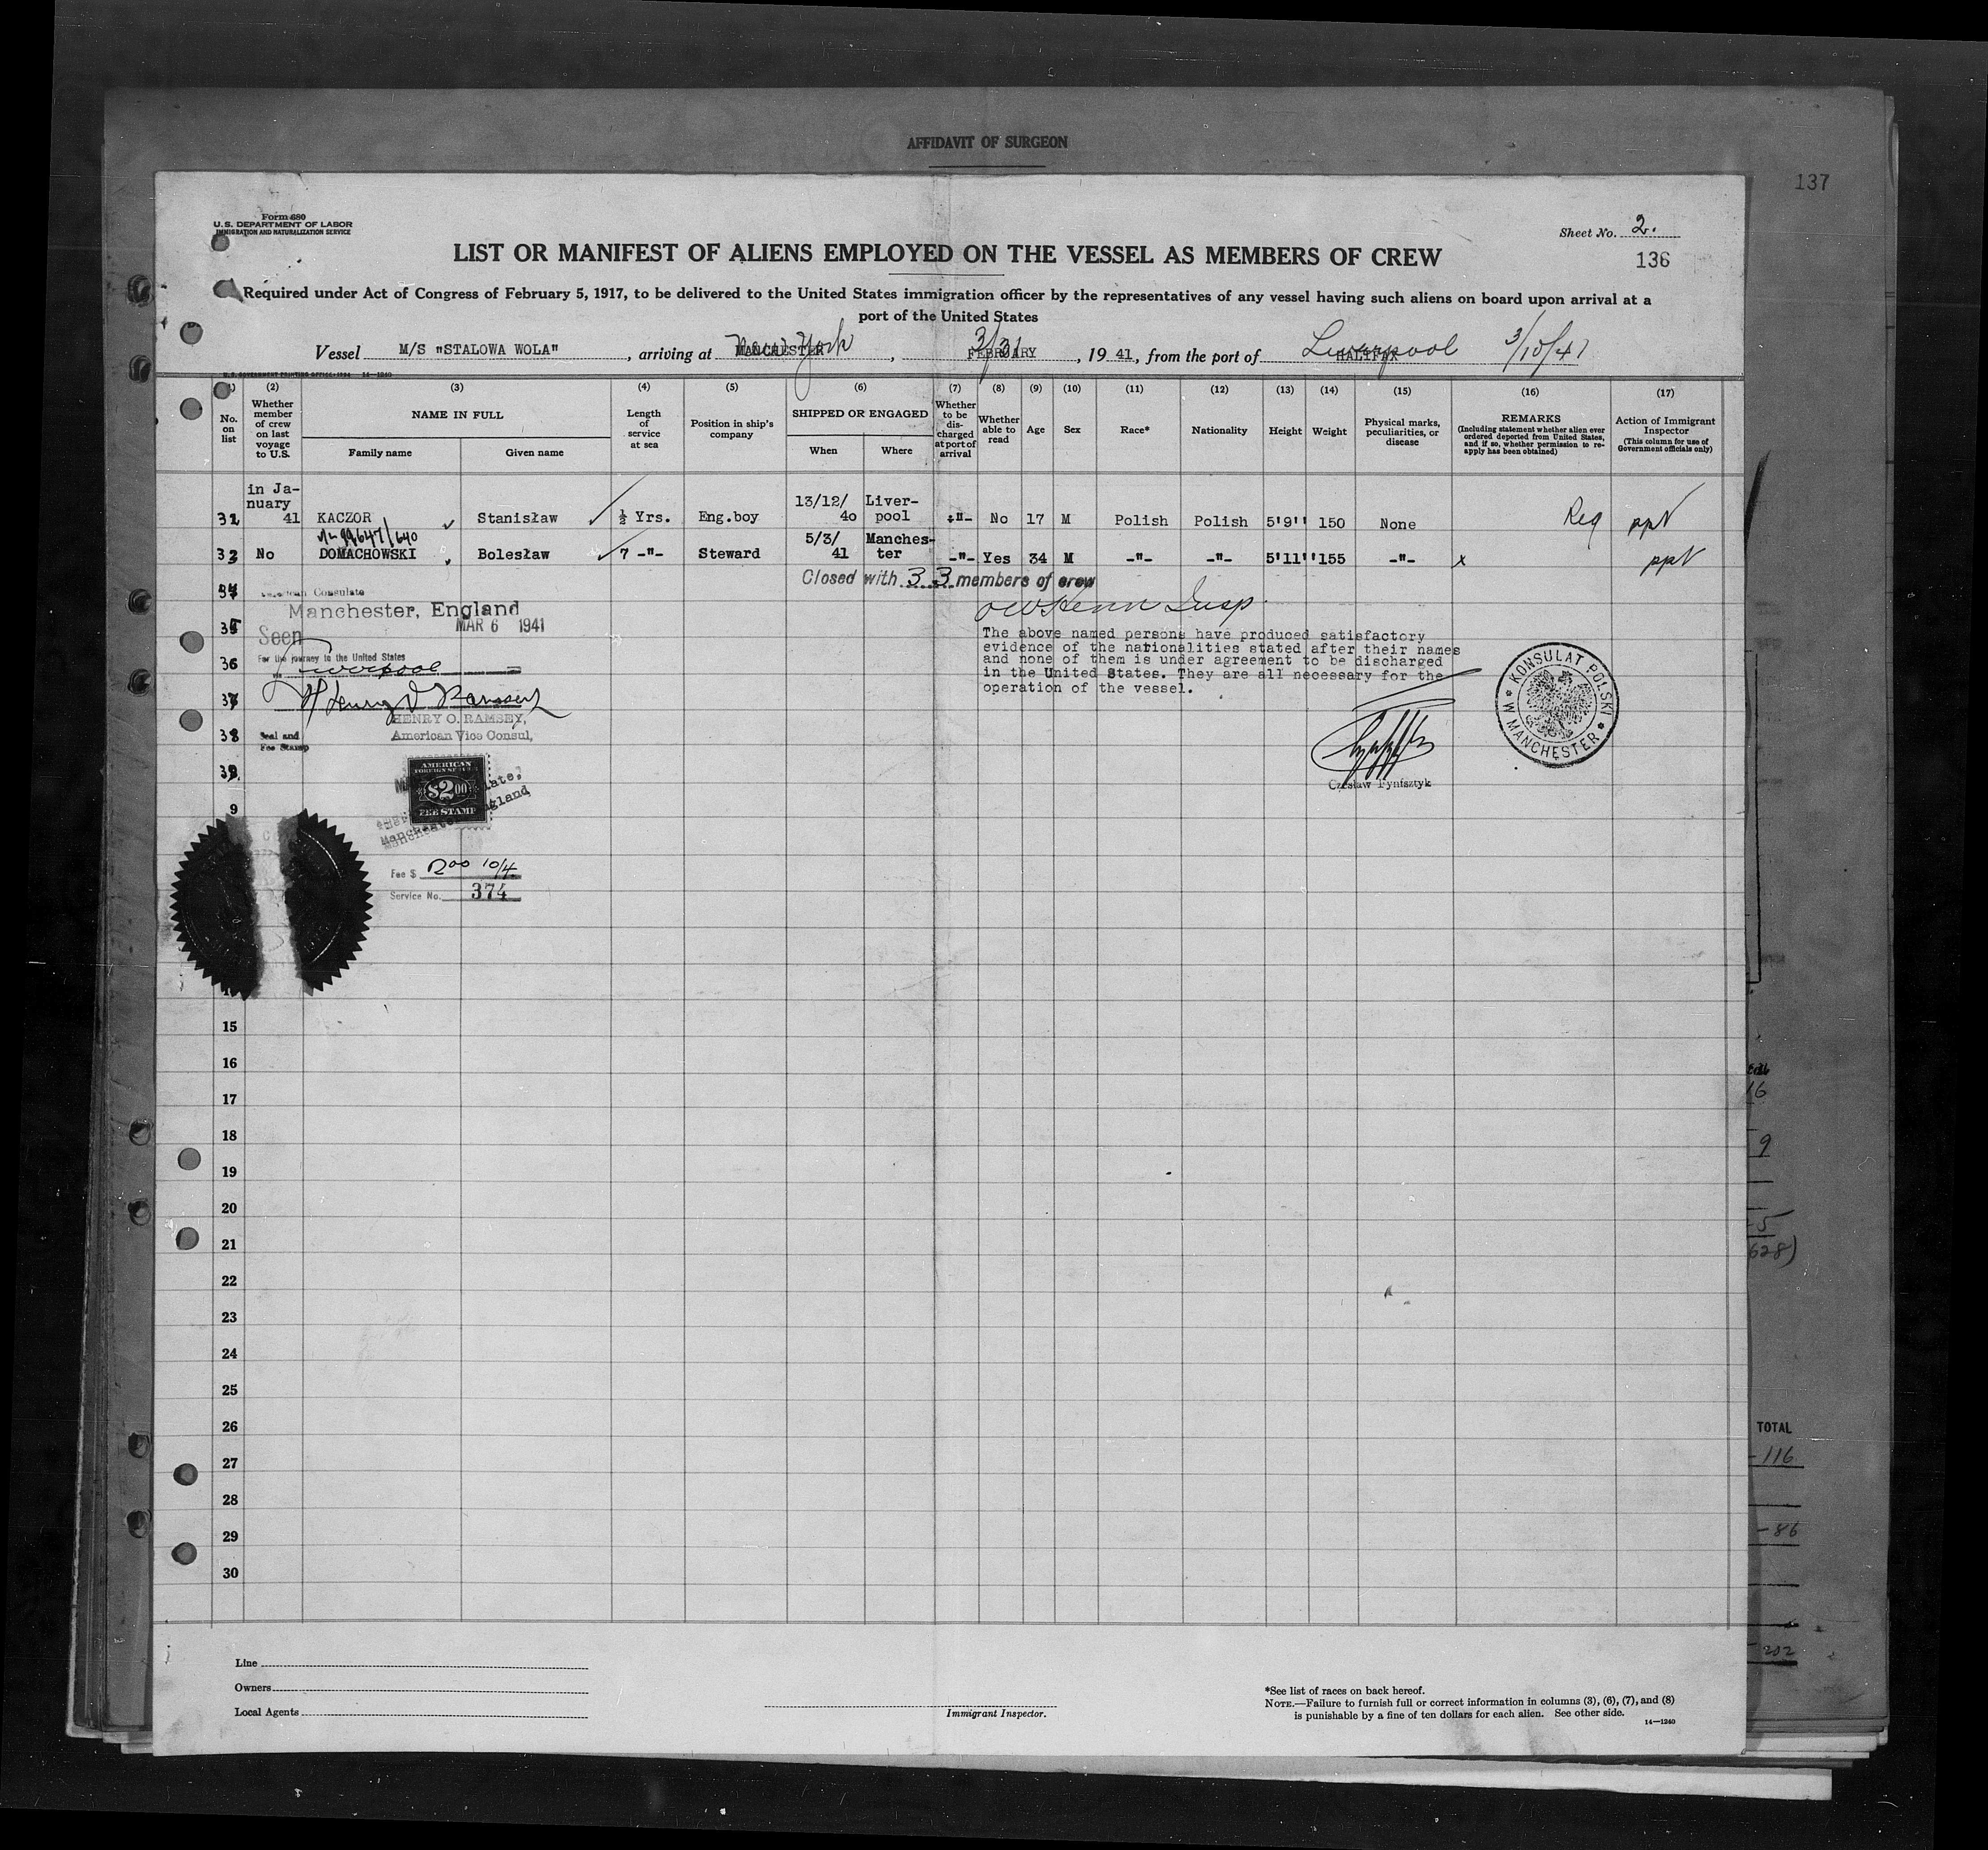 AFFIDAVIT OF SURGEON
137
Form 680
U.S. DEPARTMENT OF LABOR
IMMIGRATION AND NATURALIZATION SERVICE
Sheet No. 2.
136
LIST OR MANIFEST OF ALIENS EMPLOYED ON THE VESSEL AS MEMBERS OF CREW
Required under Act of Congress of February 5, 1917, to be delivered to the United States immigration officer by the representatives of any vessel having such aliens on board upon arrival at a
port of the United States
Vessel M/S "STALOWA WOLA", arriving at MANCHESTER New York, FEBRUARY 3/31, 19 41, from the port of HALIFAX Liverpool 3/10/41
U.S. GOVERNMENT PRINTING OFFICE: 1934 14—1240
(1) (2) (3) (4) (5) (6) (7) (8) (9) (10) (11) (12) (13) (14) (15) (16) (17)
No. on list
Whether member of crew on last voyage to U.S.
NAME IN FULL
Family name
Given name
Length of service at sea
Position in ship's company
SHIPPED OR ENGAGED
When
Where
Whether to be discharged at port of arrival
Whether able to read
Age
Sex
Race*
Nationality
Height
Weight
Physical marks, peculiarities, or disease
REMARKS
(Including statement whether alien ever ordered deported from United States, and if so, whether permission to re-apply has been obtained)
Action of Immigrant Inspector
(This column for use of Government officials only)
in Ja-
nuary 13/12/ Liver-
32 41 KACZOR Stanisław ½ Yrs. Eng.boy 40 pool -"- No 17 M Polish Polish 5'9'' 150 None Req ppt
5/3/ Manches-
33 No DOMACHOWSKI Bolesław 7 -"- Steward 41 ter -"- Yes 34 M -"- -"- 5'11'' 155 -"- x ppt
Closed with 33 members of crew
34
American Consulate
Manchester, England
MAR 6 1941
35
Seen
For the journey to the United States
36
via Liverpool
37
Henry O Ramsey
HENRY O. RAMSEY,
38
American Vice Consul,
Seal and
Fee Stamp
The above named persons have produced satisfactory
evidence of the nationalities stated after their names
and none of them is under agreement to be discharged
in the United States. They are all necessary for the
operation of the vessel.
KONSULAT POLSKI
W MANCHESTER
39
AMERICAN
FOREIGN SERVICE
$2.00
FEE STAMP
Manchester, England
9
Fee $ 2.00 10/4
Service No. 374
15
16
17
18
19
20
21
22
23
24
25
26
27
28
29
30
16
9
628)
TOTAL
-116
-86
202
Line
Owners
Local Agents
Immigrant Inspector.
*See list of races on back hereof.
NOTE.—Failure to furnish full or correct information in columns (3), (6), (7), and (8)
is punishable by a fine of ten dollars for each alien. See other side.
14—1240